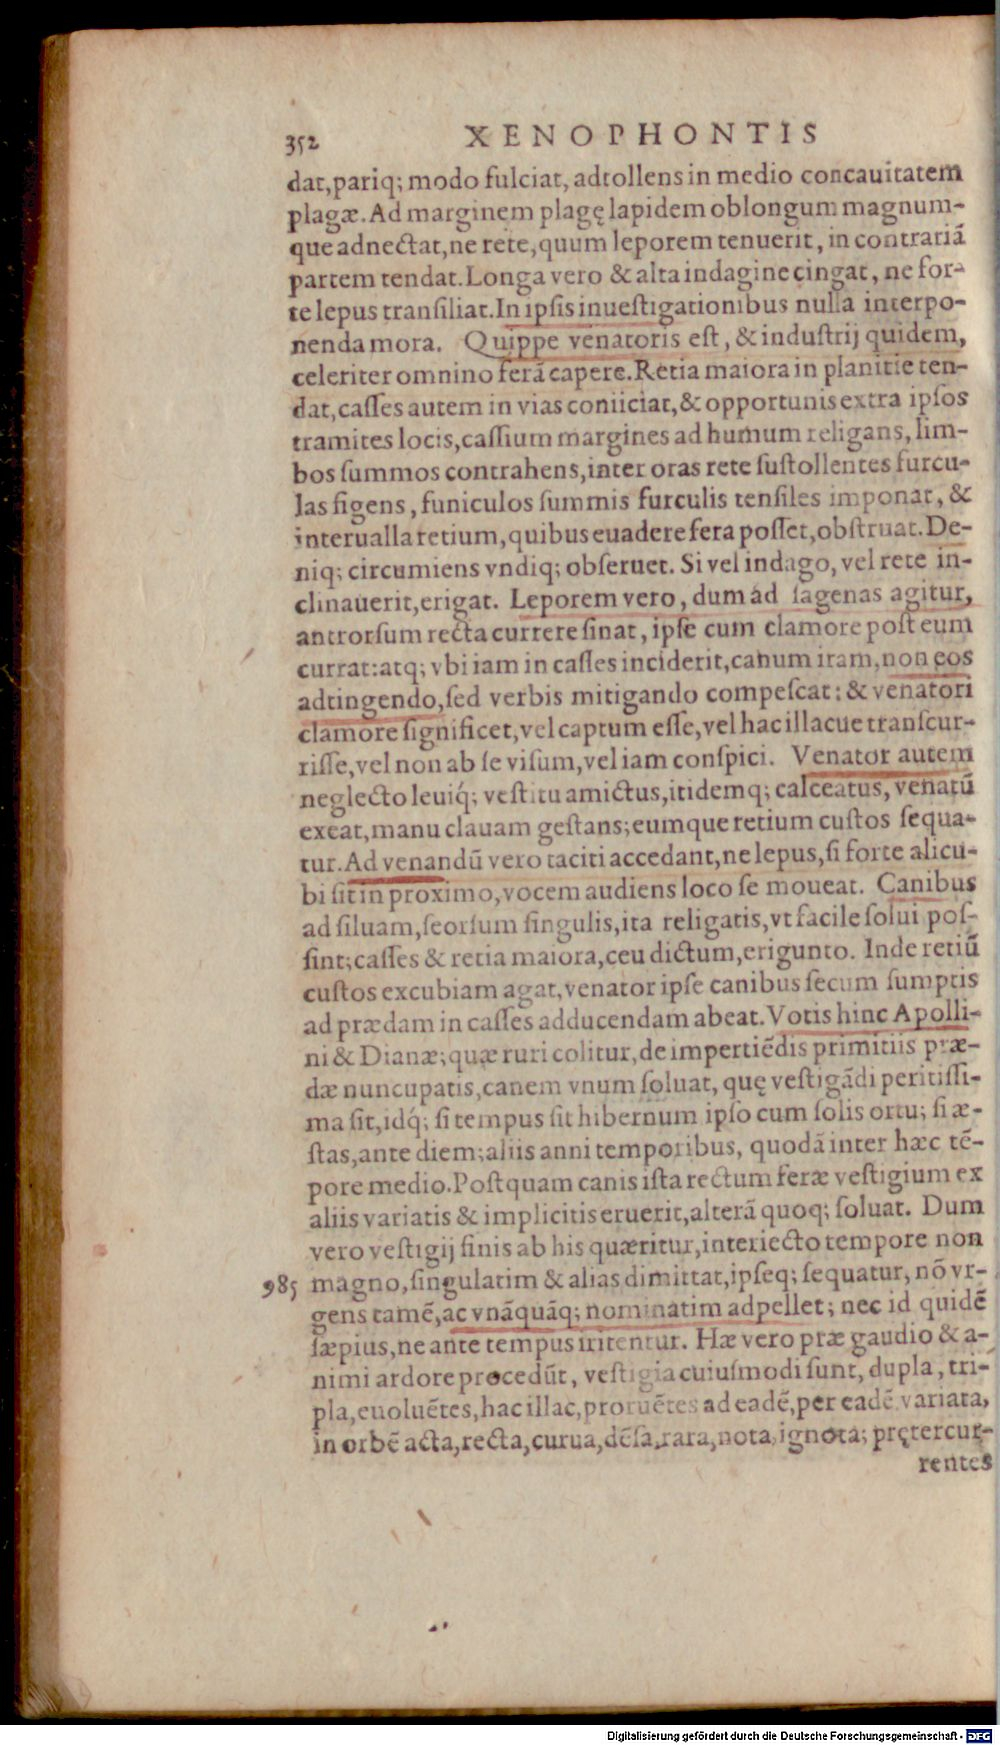 352 XENOPHONTIS
dat,pariq; modo fulciat, adtollens in medio concauitatem
plagæ. Ad marginem plagę lapidem oblongum magnum-
que adnectat, ne rete, quum leporem tenuerit, in contrariā
partem tendat. Longa vero & alta indagine cingat, ne for-
te lepus tranſiliat. In ipſis inueſtigationibus nulla interpo-
nenda mora. Quippe venatoris eſt, & induſtrij quidem,
celeriter omnino ferā capere. Retia maiora in planitie ten-
dat, caſſes autem in vias coniiciat, & opportunis extra ipſos
tramites locis, caſſium margines ad humum religans, lim-
bos ſummos contrahens, inter oras rete ſuſtollentes furcu-
las figens, funiculos ſummis furculis tenſiles imponat, &
interualla retium, quibus euadere fera poſſet, obſtruat. De-
niq; circumiens vndiq; obſeruet. Si vel indago, vel rete in-
clinauerit, erigat. Leporem vero, dum ad ſagenas agitur,
antrorſum recta currere ſinat, ipſe cum clamore poſt eum
currat: atq; vbi iam in caſſes inciderit, canum iram, non eos
adtingendo, ſed verbis mitigando compeſcat: & venatori
clamore ſignificet, vel captum eſſe, vel hac illacue tranſcur-
riſſe, vel non ab ſe viſum, vel iam conſpici. Venator autem
neglecto leuiq́; veſtitu amictus, itidemq; calceatus, venatū
exeat, manu clauam geſtans; eumque retium cuſtos ſequa-
tur. Ad venandū vero taciti accedant, ne lepus, ſi forte alicu-
bi ſit in proximo, vocem audiens loco ſe moueat. Canibus
ad ſiluam, ſeorſum ſingulis, ita religatis, vt facile ſolui poſ-
ſint; caſſes & retia maiora, ceu dictum, erigunto. Inde retiū
cuſtos excubiam agat, venator ipſe canibus ſecum ſumptis
ad prædam in caſſes adducendam abeat. Votis hinc Apolli-
ni & Dianæ; quæ ruri colitur, de impertiēdis primitiis præ-
dæ nuncupatis, canem vnum ſoluat, quę veſtigādi peritiſſi-
ma ſit, idq́; ſi tempus ſit hibernum ipſo cum ſolis ortu; ſi æ-
ſtas, ante diem; aliis anni temporibus, quodā inter hæc tē-
pore medio. Poſtquam canis iſta rectum feræ veſtigium ex
aliis variatis & implicitis eruerit, alterā quoq; ſoluat. Dum
vero veſtigij finis ab his quæritur, interiecto tempore non
985 magno, ſingulatim & alias dimittat, ipſeq; ſequatur, nō vr-
gens tamē, ac vnāquāq; nominatim adpellet; nec id quidē
ſæpius, ne ante tempus iritentur. Hæ vero præ gaudio & a-
nimi ardore procedūt, veſtigia cuiuſmodi ſunt, dupla, tri-
pla, euoluētes, hac illac, proruētes ad eadē, per eadē variata,
in orbē acta, recta, curua, dēſa, rara, nota, ignota; prętercur-
rentes
Digitalisierung gefördert durch die Deutsche Forschungsgemeinschaft - DFG